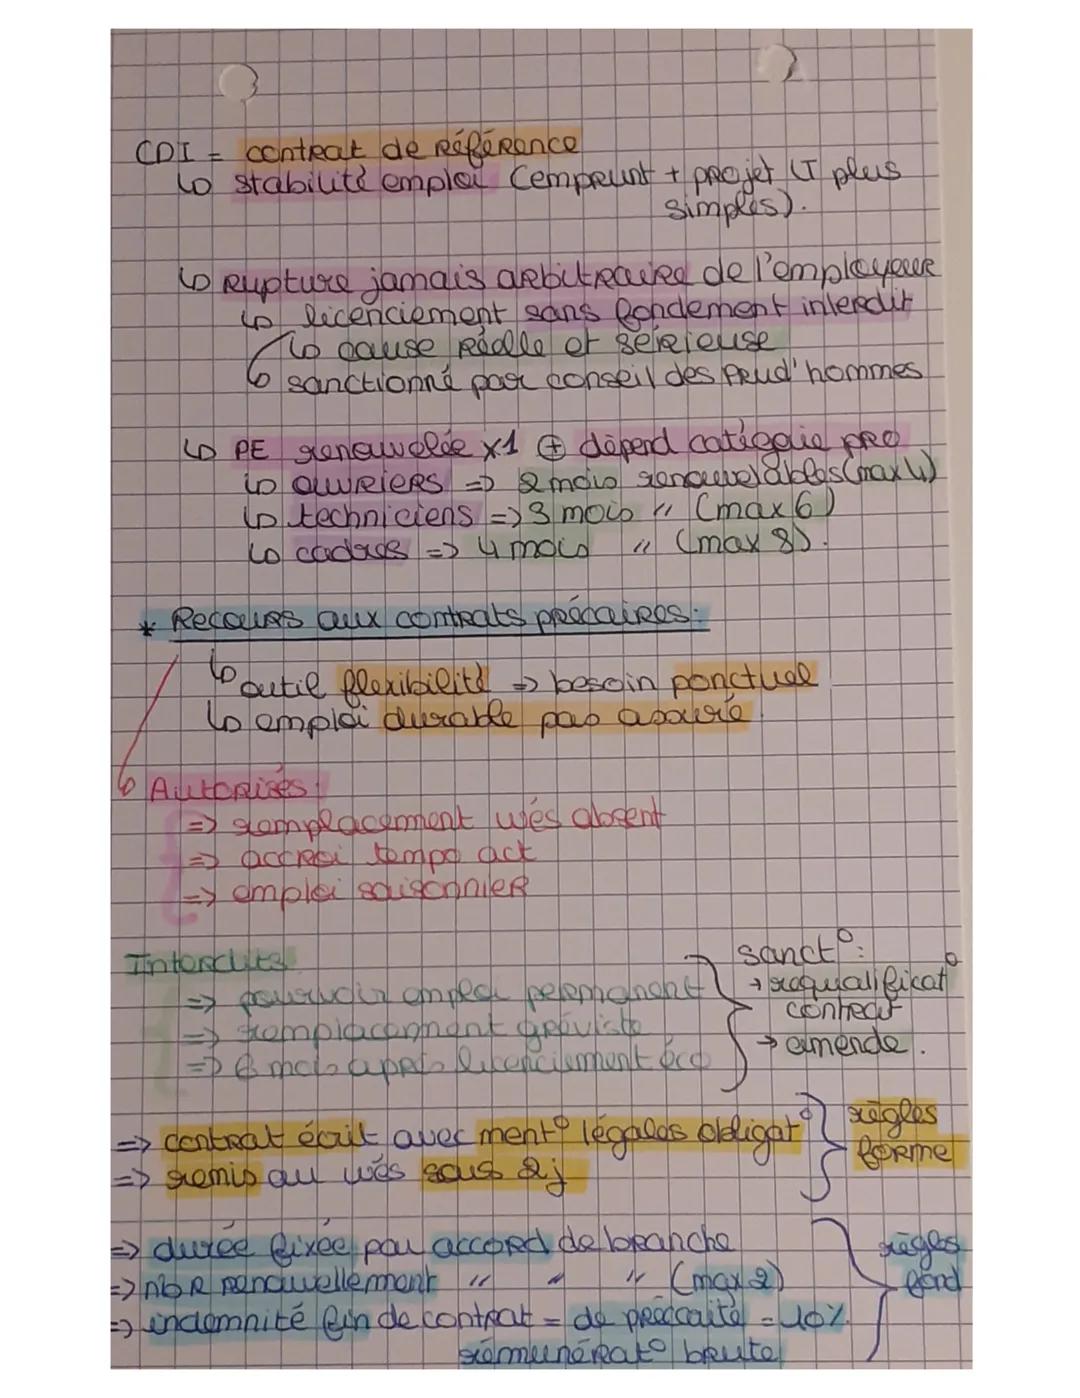 CDI = contrat de référence
↳ stabilité emploi (emprunt + projet LT plus
simples).
↳ rupture jamais arbitraire de l'employeur
↳ licenciement sans fondement interdit
↳ cause réelle et sérieuse
↳ sanctionné par conseil des Prud'hommes
↳ PE renouvelée x1 ⊕ dépend catégorie pro
↳ ouvriers => 2 mois renouvelables (max 4)
↳ techniciens => 3 mois " (max 6)
↳ cadres => 4 mois " (max 8).
* Recours aux contrats précaires :
↳ outil flexibilité => besoin ponctuel
↳ emploi durable pas assuré
↳ Autorisés :
=> remplacement wés absent
=> accroi tempo act
=> emploi saisonnier
Interdits
=> pourvoir emploi permanent
=> remplacement gréviste
=> 6 mois après licenciement éco
sanct° :
→ requalificat°
contrat
→ amende.
=> contrat écrit avec ment° légales obligat°
=> remis au wés sous 2j
règles
forme
=> durée fixée par accord de branche
=> nbR renouvellement " " " (max 2)
=> indemnité fin de contrat = de précaité = 10%
rémunérat° brute
règles
fond